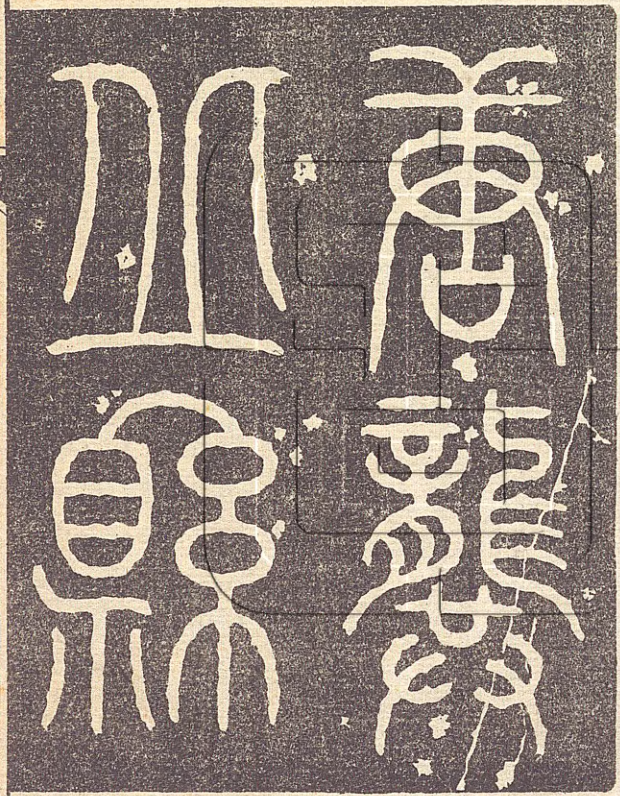 唐龔
丘縣